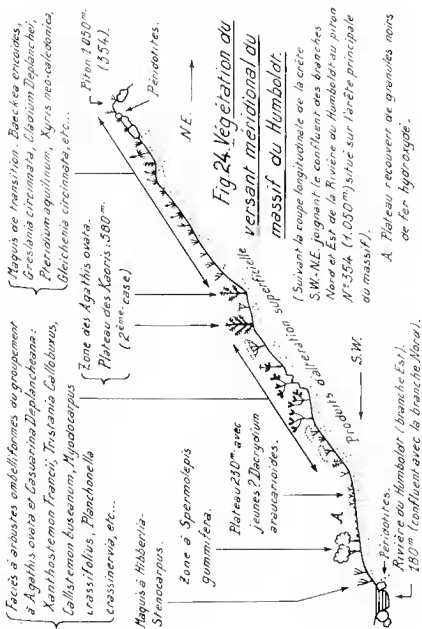 Faciès à arbustes ombelliformes du groupement
à Agathis ovata et Casuarina Deplancheana:
Xanthostemon Francii, Tristania Callobuxus,
Callistemon buseanum, Myodocarpus
crassifolius, Planchonella
crassinervia, etc...
Maquis à Hibbertia-
Stenocarpus.
Zone à Spermolepis
gummifera.
Plateau 230m. avec
jeunes? Dacrydium
araucarioides.
A
Péridotites.
Rivière du Humboldt (branche Est).
180m (confluent avec la branche Nord).
Maquis de transition. Baeckea ericoides,
Greslania circinnata, Cladium Deplanchei,
Pteridium aquilinum, Xyris neo-caledonica,
Gleichenia circinnata, etc...
Zone des Agathis ovata.
Plateau des Kaoris. 580m.
(2ème case)
Piton 1050m.
(354).
Péridotites.
Produits d'altération superficielle
S.W.
N.E.
Fig. 24. Végétation du
versant méridional du
massif du Humboldt.
(Suivant la coupe longitudinale de la crête
S.W.-N.E. joignant le confluent des branches
Nord et Est de la Rivière du Humboldt au piton
N° 354 (1.050m) situé sur l'arête principale
du massif).
A. Plateau recouvert de granules noirs
de fer hydroxydé.